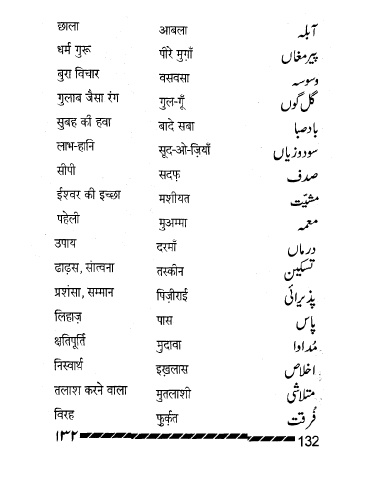 छाला आबला آبلہ
धर्म गुरू पीरे मुग़ाँ پیر مغاں
बुरा विचार वसवसा وسوسہ
गुलाब जैसा रंग गुल-गूँ گل گوں
सुबह की हवा बादे सबा بادِ صبا
लाभ-हानि सूद-ओ-ज़ियाँ سود و زیاں
सीपी सदफ़ صدف
ईश्वर की इच्छा मशीयत مشیّت
पहेली मुअम्मा معمہ
उपाय दरमाँ درماں
ढाढ़स, सांत्वना तस्कीन تسکین
प्रशंसा, सम्मान पिज़ीराई پذیرائی
लिहाज़ पास پاس
क्षतिपूर्ति मुदावा مُداوا
निस्वार्थ इख़लास اخلاص
तलाश करने वाला मुतलाशी متلاشی
विरह फ़ुर्क़त فُرقت
१३२ 132